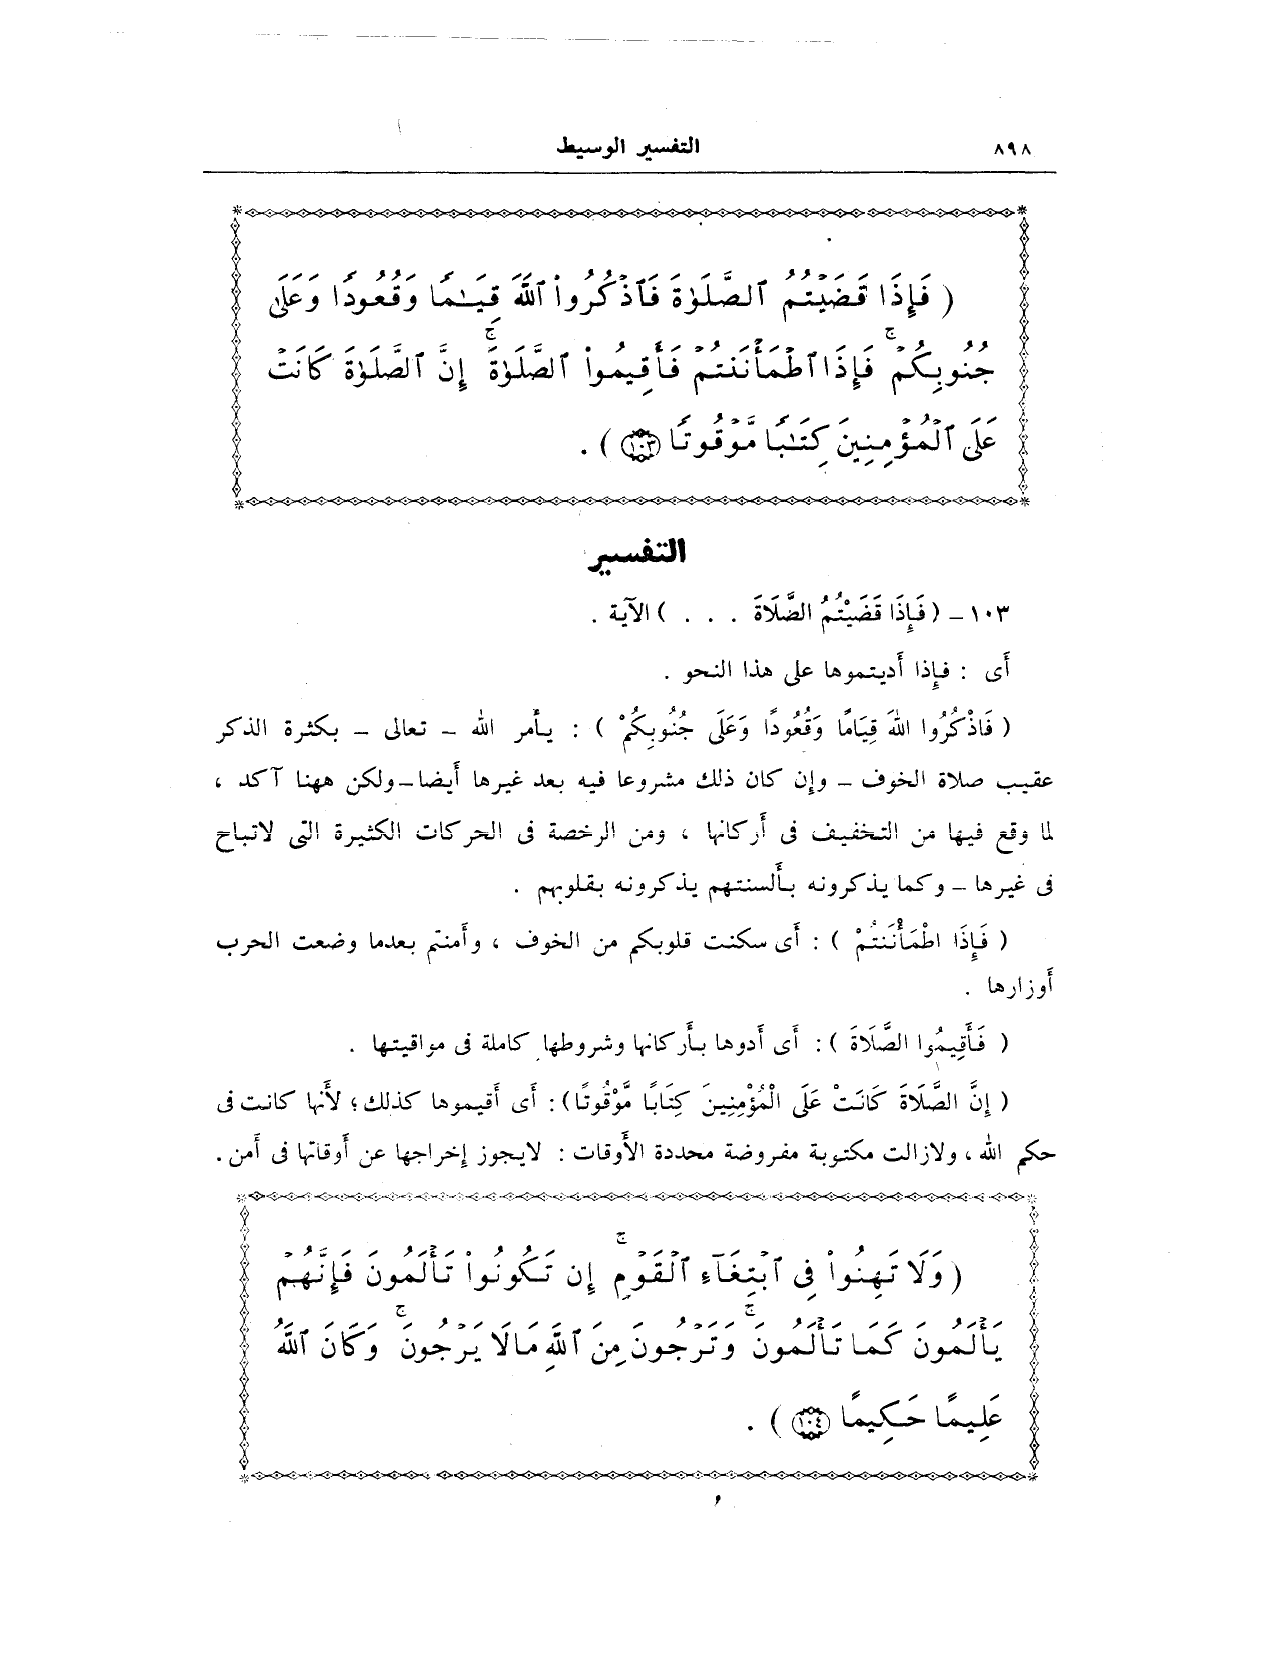 ٨٩٨
التفسير الوسيط
( فَإِذَا قَضَيْتُمُ ٱلصَّلَوٰةَ فَٱذْكُرُوا۟ ٱللَّهَ قِيَـٰمًا وَقُعُودًا وَعَلَىٰ
جُنُوبِكُمْ ۚ فَإِذَا ٱطْمَأْنَنتُمْ فَأَقِيمُوا۟ ٱلصَّلَوٰةَ ۚ إِنَّ ٱلصَّلَوٰةَ كَانَتْ
عَلَى ٱلْمُؤْمِنِينَ كِتَـٰبًا مَّوْقُوتًا ١٠٣ ) .
التفسير
١٠٣ - ( فَإِذَا قَضَيْتُمُ الصَّلَاةَ . . . ) الآية .
أى : فإذا أديتموها على هذا النحو .
( فَاذْكُرُوا اللهَ قِيَامًا وَقُعُودًا وَعَلَى جُنُوبِكُمْ ) : يأمر الله - تعالى - بكثرة الذكر
عقيب صلاة الخوف - وإن كان ذلك مشروعا فيه بعد غيرها أيضا - ولكن ههنا آكد ،
لما وقع فيها من التخفيف فى أركانها ، ومن الرخصة فى الحركات الكثيرة التى لاتباح
فى غيرها - وكما يذكرونه بألسنتهم يذكرونه بقلوبهم .
( فَإِذَا اطْمَأْنَنتُمْ ) : أى سكنت قلوبكم من الخوف ، وأمنتم بعدما وضعت الحرب
أوزارها .
( فَأَقِيمُوا الصَّلَاةَ ) : أى أدوها بأركانها وشروطها كاملة فى مواقيتها .
( إِنَّ الصَّلَاةَ كَانَتْ عَلَى الْمُؤْمِنِينَ كِتَابًا مَّوْقُوتًا ) : أى أقيموها كذلك ؛ لأنها كانت فى
حكم الله ، ولازالت مكتوبة مفروضة محددة الأوقات : لايجوز إخراجها عن أوقاتها فى أمن .
( وَلَا تَهِنُوا۟ فِى ٱبْتِغَآءِ ٱلْقَوْمِ ۚ إِن تَكُونُوا۟ تَأْلَمُونَ فَإِنَّهُمْ
يَأْلَمُونَ كَمَا تَأْلَمُونَ ۚ وَتَرْجُونَ مِنَ ٱللَّهِ مَا لَا يَرْجُونَ ۚ وَكَانَ ٱللَّهُ
عَلِيمًا حَكِيمًا ١٠٤ ) .